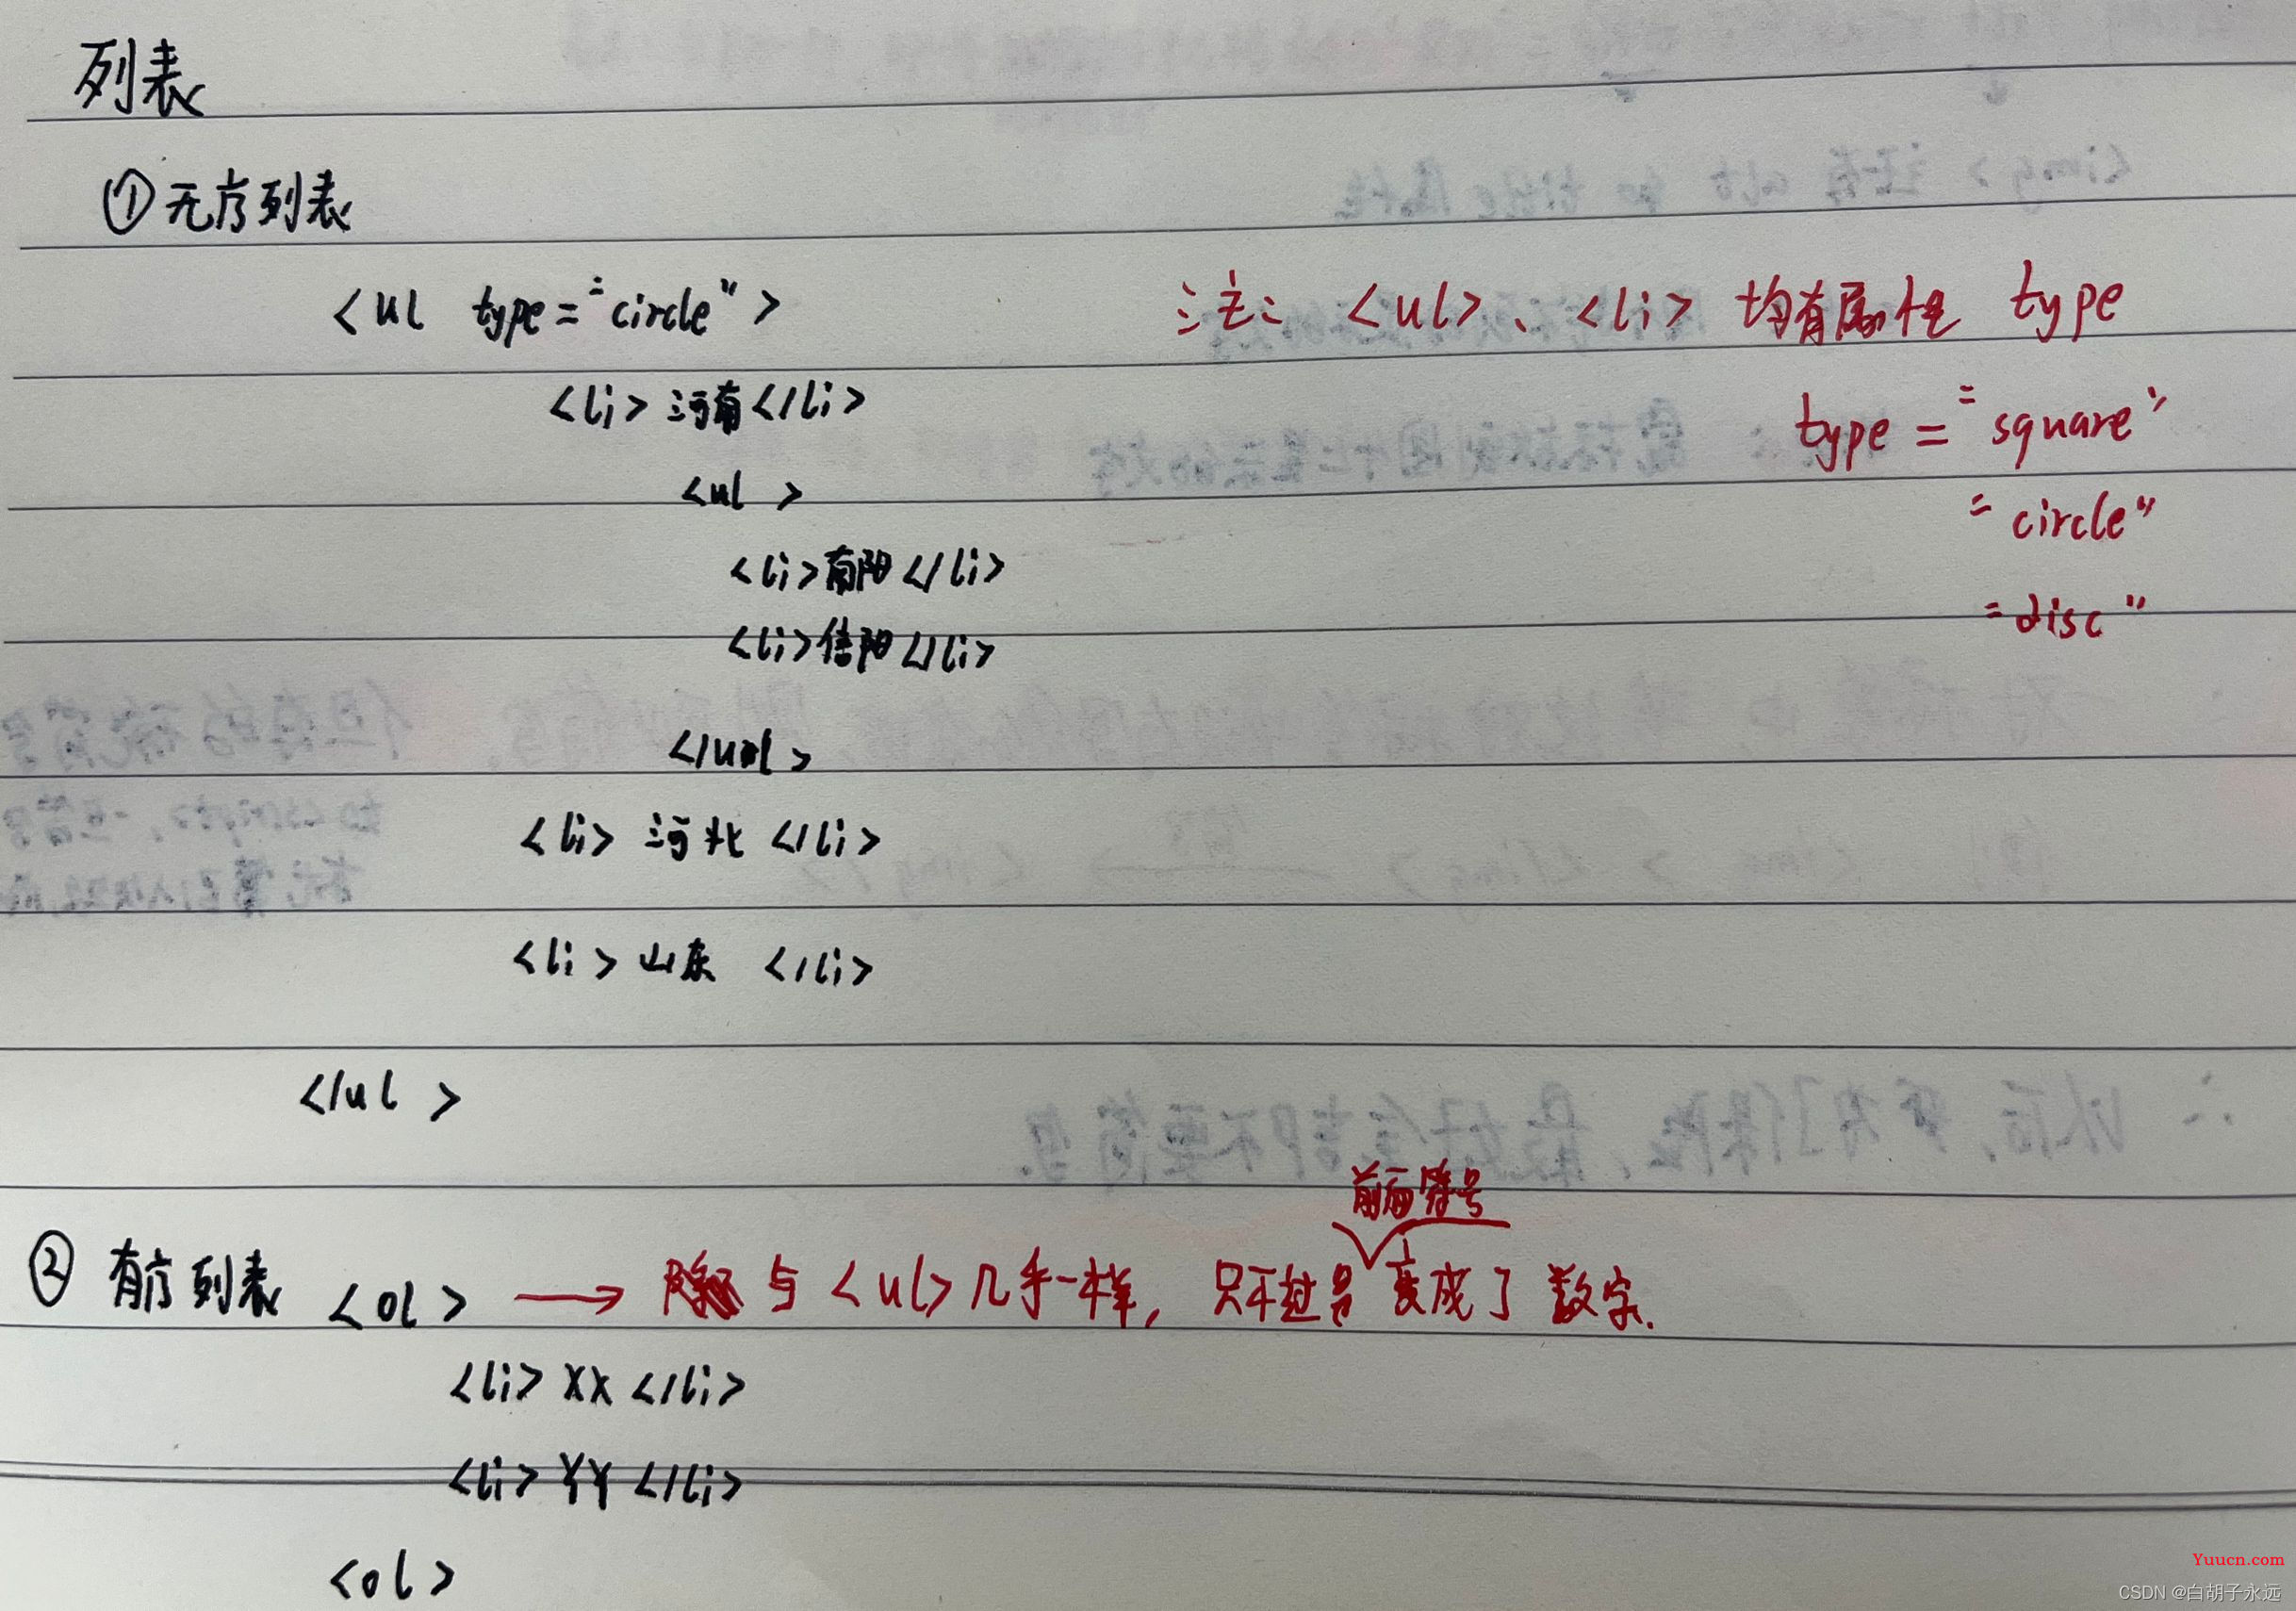 列表
①无序列表
<ul type="circle">
注: <ul>、<li> 均有属性 type
<li>河南</li>
type="square"
<ul >
"circle"
<li>南阳</li>
"disc"
<li>信阳</li>
</ul>
<li>河北</li>
<li>山东</li>
</ul>
前面符号
②有序列表 <ol> → 与<ul>几乎一样, 只不过 变成了数字.
<li>XX</li>
<li>YY</li>
<ol>
Yuucn.com
CSDN @白胡子永远